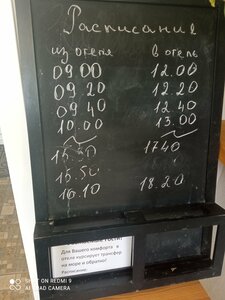 Расписание
из отеля в отель
09.00 12.00
09.20 12.20
09.40 12.40
10.00 13.00
15.30 17.40
15.50
16.10 18.20
Для Вашего комфорта в
отеле курсирует трансфер
на море и обратно!
Расписание:
SHOT ON REDMI 9
AI QUAD CAMERA